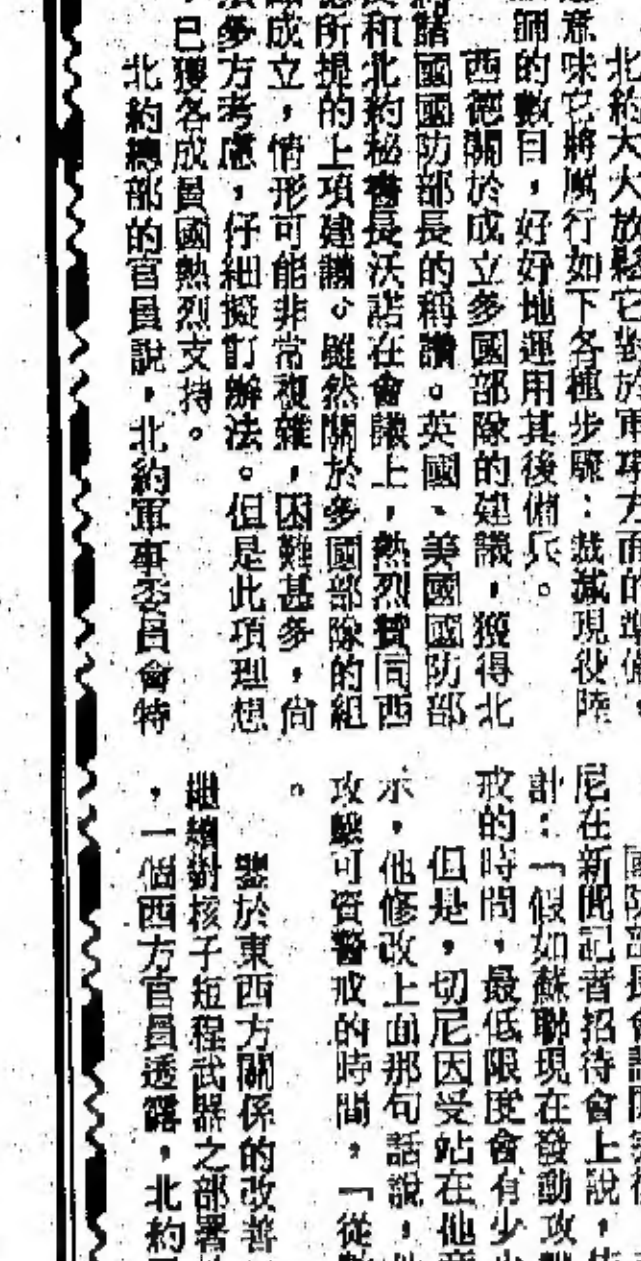 北約大大放鬆它對於軍事方面的準備，
意味它將厲行如下各種步驟：裁減現役陸
師的數目，好好地運用其後備兵。
西德關於成立多國部隊的建議，獲得北
諸國國防部長的稱讚。英國、美國國防部
和北約秘書長沃諾在會議上，熱烈贊同西
所提的上項建議。雖然關於多國部隊的組
成立，情形可能非常複雜，困難甚多，尚
須多方考慮，仔細擬訂辦法。但是此項理想
，已獲各成員國熱烈支持。
北約總部的官員說，北約軍事委員會特
國防部長會議
尼在新聞記者招待會上說，
計：「假如蘇聯現在發動攻
戒的時間，最低限度會有少
但是，切尼因受站在他
示，他修改上面那句話說，
攻擊可資警戒的時間，「從
。
鑒於東西方關係的改善
繼續對核子短程武器之部署
，一個西方官員透露，北約